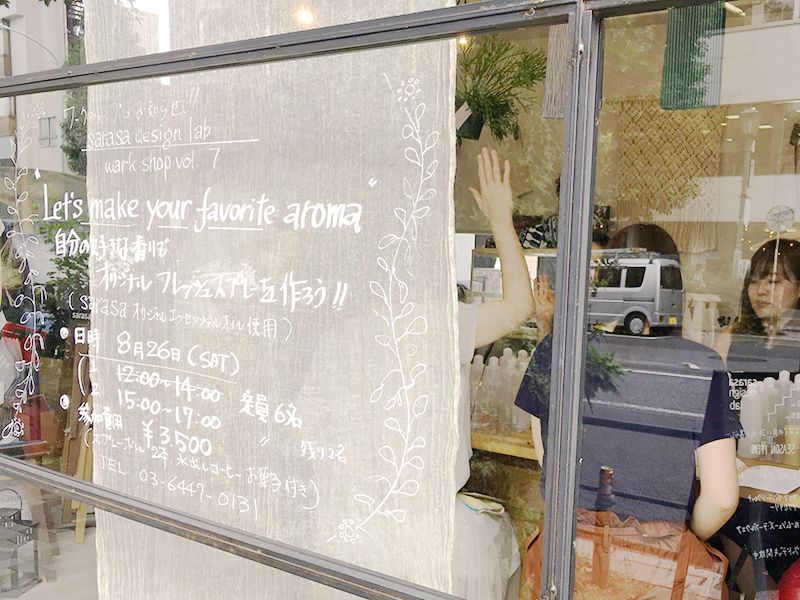 ワークショップのお知らせ!!
sarasa design lab
wark shop vol. 7
"Let's make your favorite aroma"
自分の好きな香りで
オリジナル フレッシュスプレーを作ろう!!
(sarasa オリジナルエッセンシャルオイル使用)
• 日時 8月26日(SAT)
1 12:00~14:00
2 15:00~17:00 定員6名
• 参加費用 ¥3,500 〃 残り2名
(スプレーボトル 2本 水出しコーヒー お菓子付き)
TEL 03-6447-0131
sarasa
design
lab
SEASON ITEM